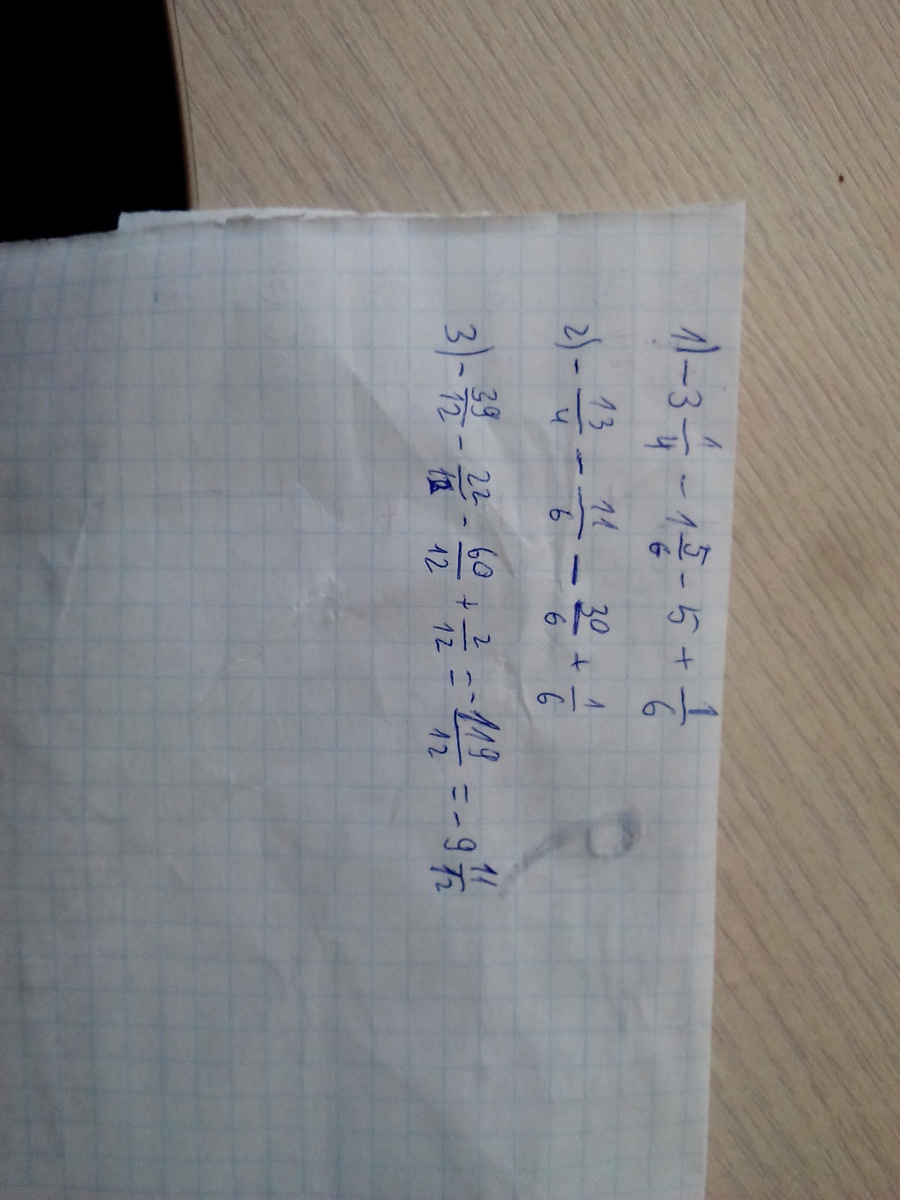 1) -3 1/4 - 1 5/6 - 5 + 1/6
2) - 13/4 - 11/6 - 30/6 + 1/6
3) - 39/12 - 22/12 - 60/12 + 2/12 = - 119/12 = - 9 11/12